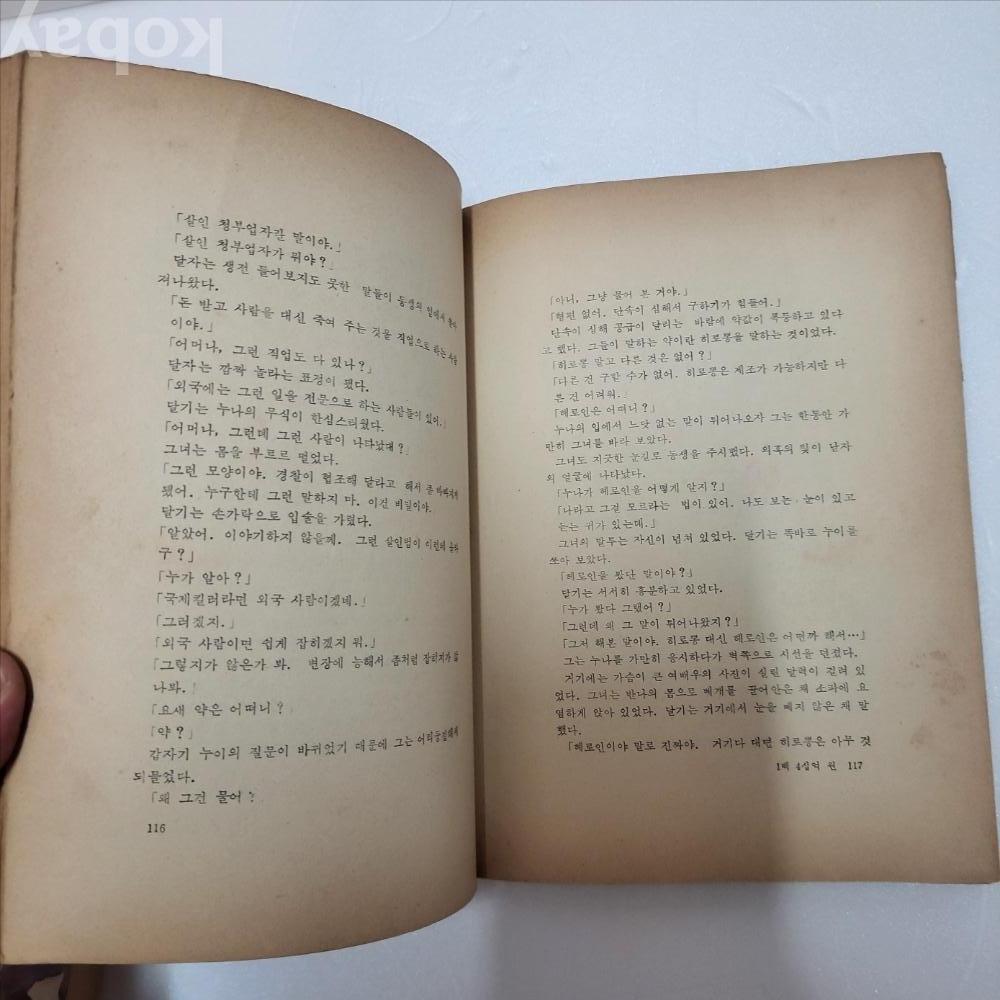 kobay
「살인 청부업자란 말이야.」
「살인 청부업자가 뭐야?」
달자는 생전 들어보지도 못한 말들이 동생의 입에서
져나왔다.
「돈 받고 사람을 대신 죽여 주는 것을 직업으로 하는
이야.」
「어머나, 그런 직업도 다 있나?」
달자는 깜짝 놀라는 표정이 됐다.
「외국에는 그런 일을 전문으로 하는 사람들이 있어.」
달기는 누나의 무식이 한심스러웠다.
「어머나, 그런데 그런 사람이 나타났대?」
그녀는 몸을 부르르 떨었다.
「그런 모양이야. 경찰이 협조해 달라고 해서 좀 바빠지게
됐어. 누구한테 그런 말하지 마. 이건 비밀이야.
달기는 손가락으로 입술을 가렸다.
「알았어. 이야기하지 않을께. 그런 살인범이 이런데
구?」
「누가 알아?」
「국제킬러라면 외국 사람이겠네.」
「그러겠지.」
「외국 사람이면 쉽게 잡히겠지 뭐.」
「그렇지가 않은가 봐. 변장에 능해서 좀처럼 잡히지가
나봐.
「요새 약은 어떠니?
「약?」
갑자기 누이의 질문이 바뀌었기 때문에 그는
되물었다.
「왜 그건 물어?
116
「아니, 그냥 물어 본 거야.」
「형편 없어. 단속이 심해서 구하기가 힘들어.」
단속이 심해 공급이 달리는 바람에 약값이 폭등하고 있다
고 했다. 그들이 말하는 약이란 히로뽕을 말하는 것이었다.
「히로뽕 말고 다른 것은 없어?」
「다른 건 구할 수가 없어. 히로뽕은 제조가 가능하지만 다
른 건 어려워.」
「헤로인은 어떠니?」
누나의 입에서 느닷 없는 말이 튀어나오자 그는 한동안 가
만히 그녀를 바라 보았다.
그녀도 지긋한 눈길로 동생을 주시했다. 의혹의 빛이 남자
의 얼굴에 나타났다.
「누나가 헤로인을 어떻게 알지?」
「나라고 그걸 모르라는 법이 있어. 나도 보는 눈이 있고
듣는 귀가 있는데.」
그녀의 말투는 자신이 넘쳐 있었다. 달기는 똑바로 누이를
쏘아 보았다.
「헤로인을 봤단 말이야?」
달기는 서서히 흥분하고 있었다.
「누가 봤다 그랬어?」
「그런데 왜 그 말이 튀어나왔지?」
「그저 해본 말이야. 히로뽕 대신 헤로인은 어떤까 해서…」
그는 누나를 가만히 응시하다가 벽쪽으로 시선을 던졌다.
거기에는 가슴이 큰 여배우의 사진이 실린 달력이 걸려 있
었다. 그녀는 반나의 몸으로 베개를 끌어안은 채 소파에 요
염하게 앉아 있었다. 달기는 거기에서 눈을 떼지 않은 채 말
했다.
「헤로인이야 말로 진짜야. 거기다 대면 히로뽕은 아무 것
1백 4십억 원 117